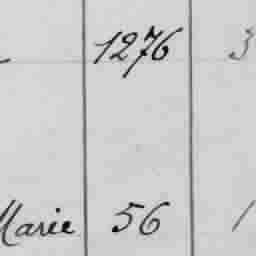 1276 3
Marie 56 1